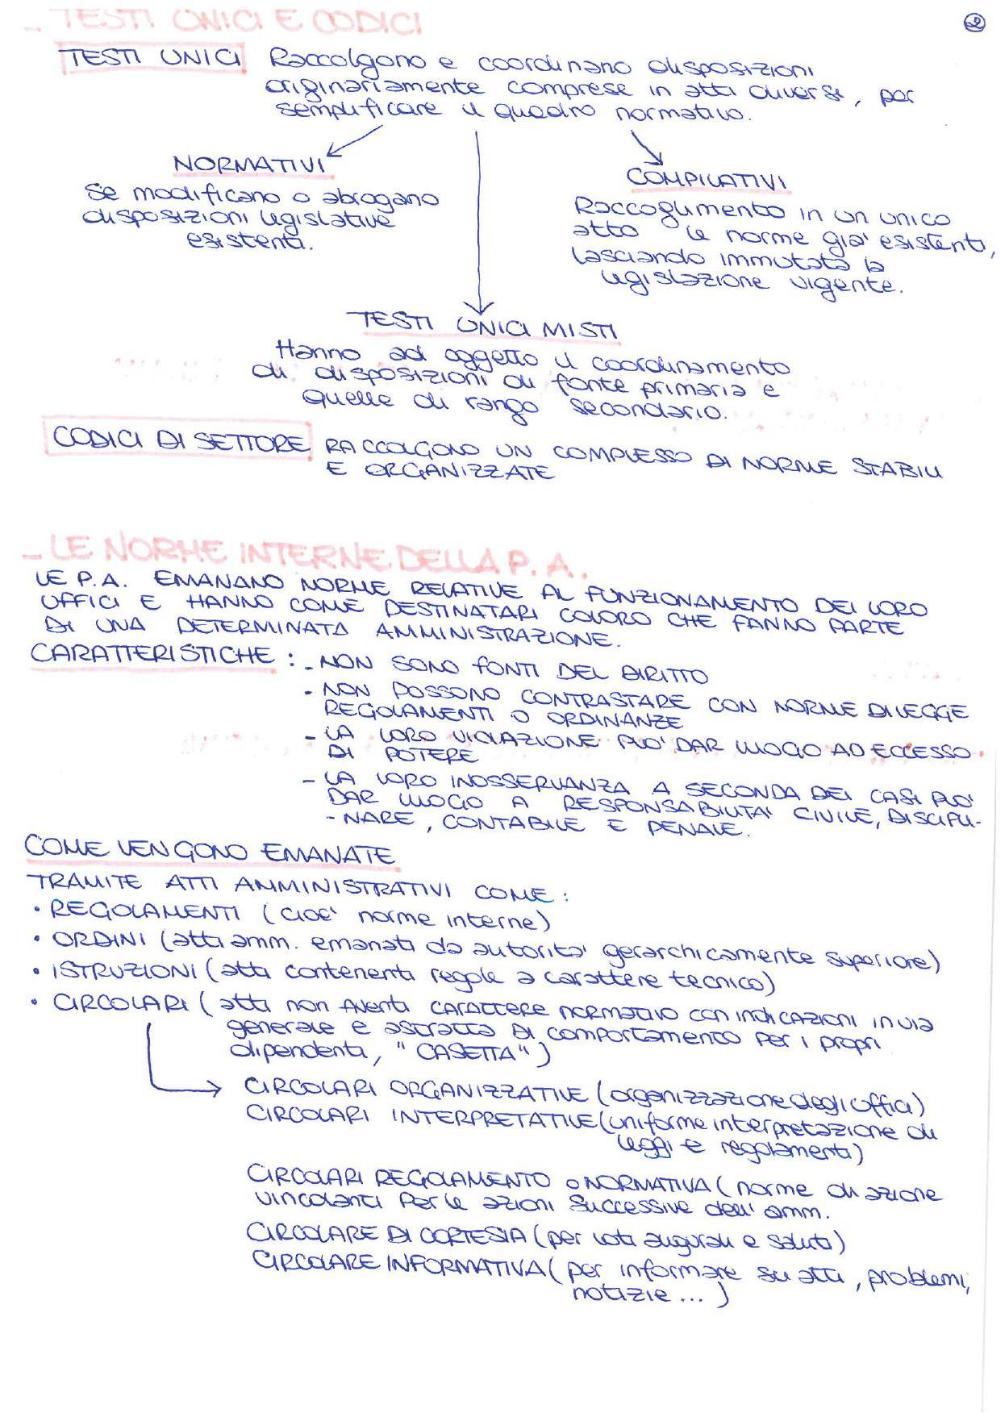 – TESTI UNICI E CODICI
2
TESTI UNICI Raccolgono e coordinano disposizioni
originariamente comprese in atti diversi, per
semplificare il quadro normativo.
NORMATIVI
Se modificano o abrogano
disposizioni legislative
esistenti.
COMPILATIVI
Raccoglimento in un unico
atto le norme già esistenti,
lasciando immutata la
legislazione vigente.
TESTI UNICI MISTI
Hanno ad oggetto il coordinamento
di disposizioni di fonte primaria e
quelle di rango secondario.
CODICI DI SETTORE RACCOLGONO UN COMPLESSO DI NORME STABILI
E ORGANIZZATE
– LE NORME INTERNE DELLA P.A.
LE P.A. EMANANO NORME RELATIVE AL FUNZIONAMENTO DEI LORO
UFFICI E HANNO COME DESTINATARI COLORO CHE FANNO PARTE
DI UNA DETERMINATA AMMINISTRAZIONE.
CARATTERISTICHE : - NON SONO FONTI DEL DIRITTO
- NON POSSONO CONTRASTARE CON NORME DI LEGGE
REGOLAMENTI O ORDINANZE
- LA LORO VIOLAZIONE PUO' DAR LUOGO AD ECCESSO
DI POTERE
- LA LORO INOSSERVANZA A SECONDA DEI CASI PUO'
DAR LUOGO A RESPONSABILITA' CIVILE, DISCIPLI-
-NARE, CONTABILE E PENALE.
COME VENGONO EMANATE
TRAMITE ATTI AMMINISTRATIVI COME :
• REGOLAMENTI (cioè norme interne)
• ORDINI (atti amm. emanati da autorità gerarchicamente superiore)
• ISTRUZIONI (atti contenenti regole a carattere tecnico)
• CIRCOLARI (atti non aventi CARATTERE NORMATIVO con indicazioni in via
generale e astratta di comportamento per i propri
dipendenti, "CASETTA")
CIRCOLARI ORGANIZZATIVE (organizzazione degli uffici)
CIRCOLARI INTERPRETATIVE (uniforme interpretazione di
leggi e regolamenti)
CIRCOLARI REGOLAMENTO o NORMATIVA (norme di azione
vincolanti per le azioni successive dell' amm.
CIRCOLARE DI CORTESIA (per voti augurali e saluti)
CIRCOLARE INFORMATIVA (per informare su atti, problemi,
notizie ... )